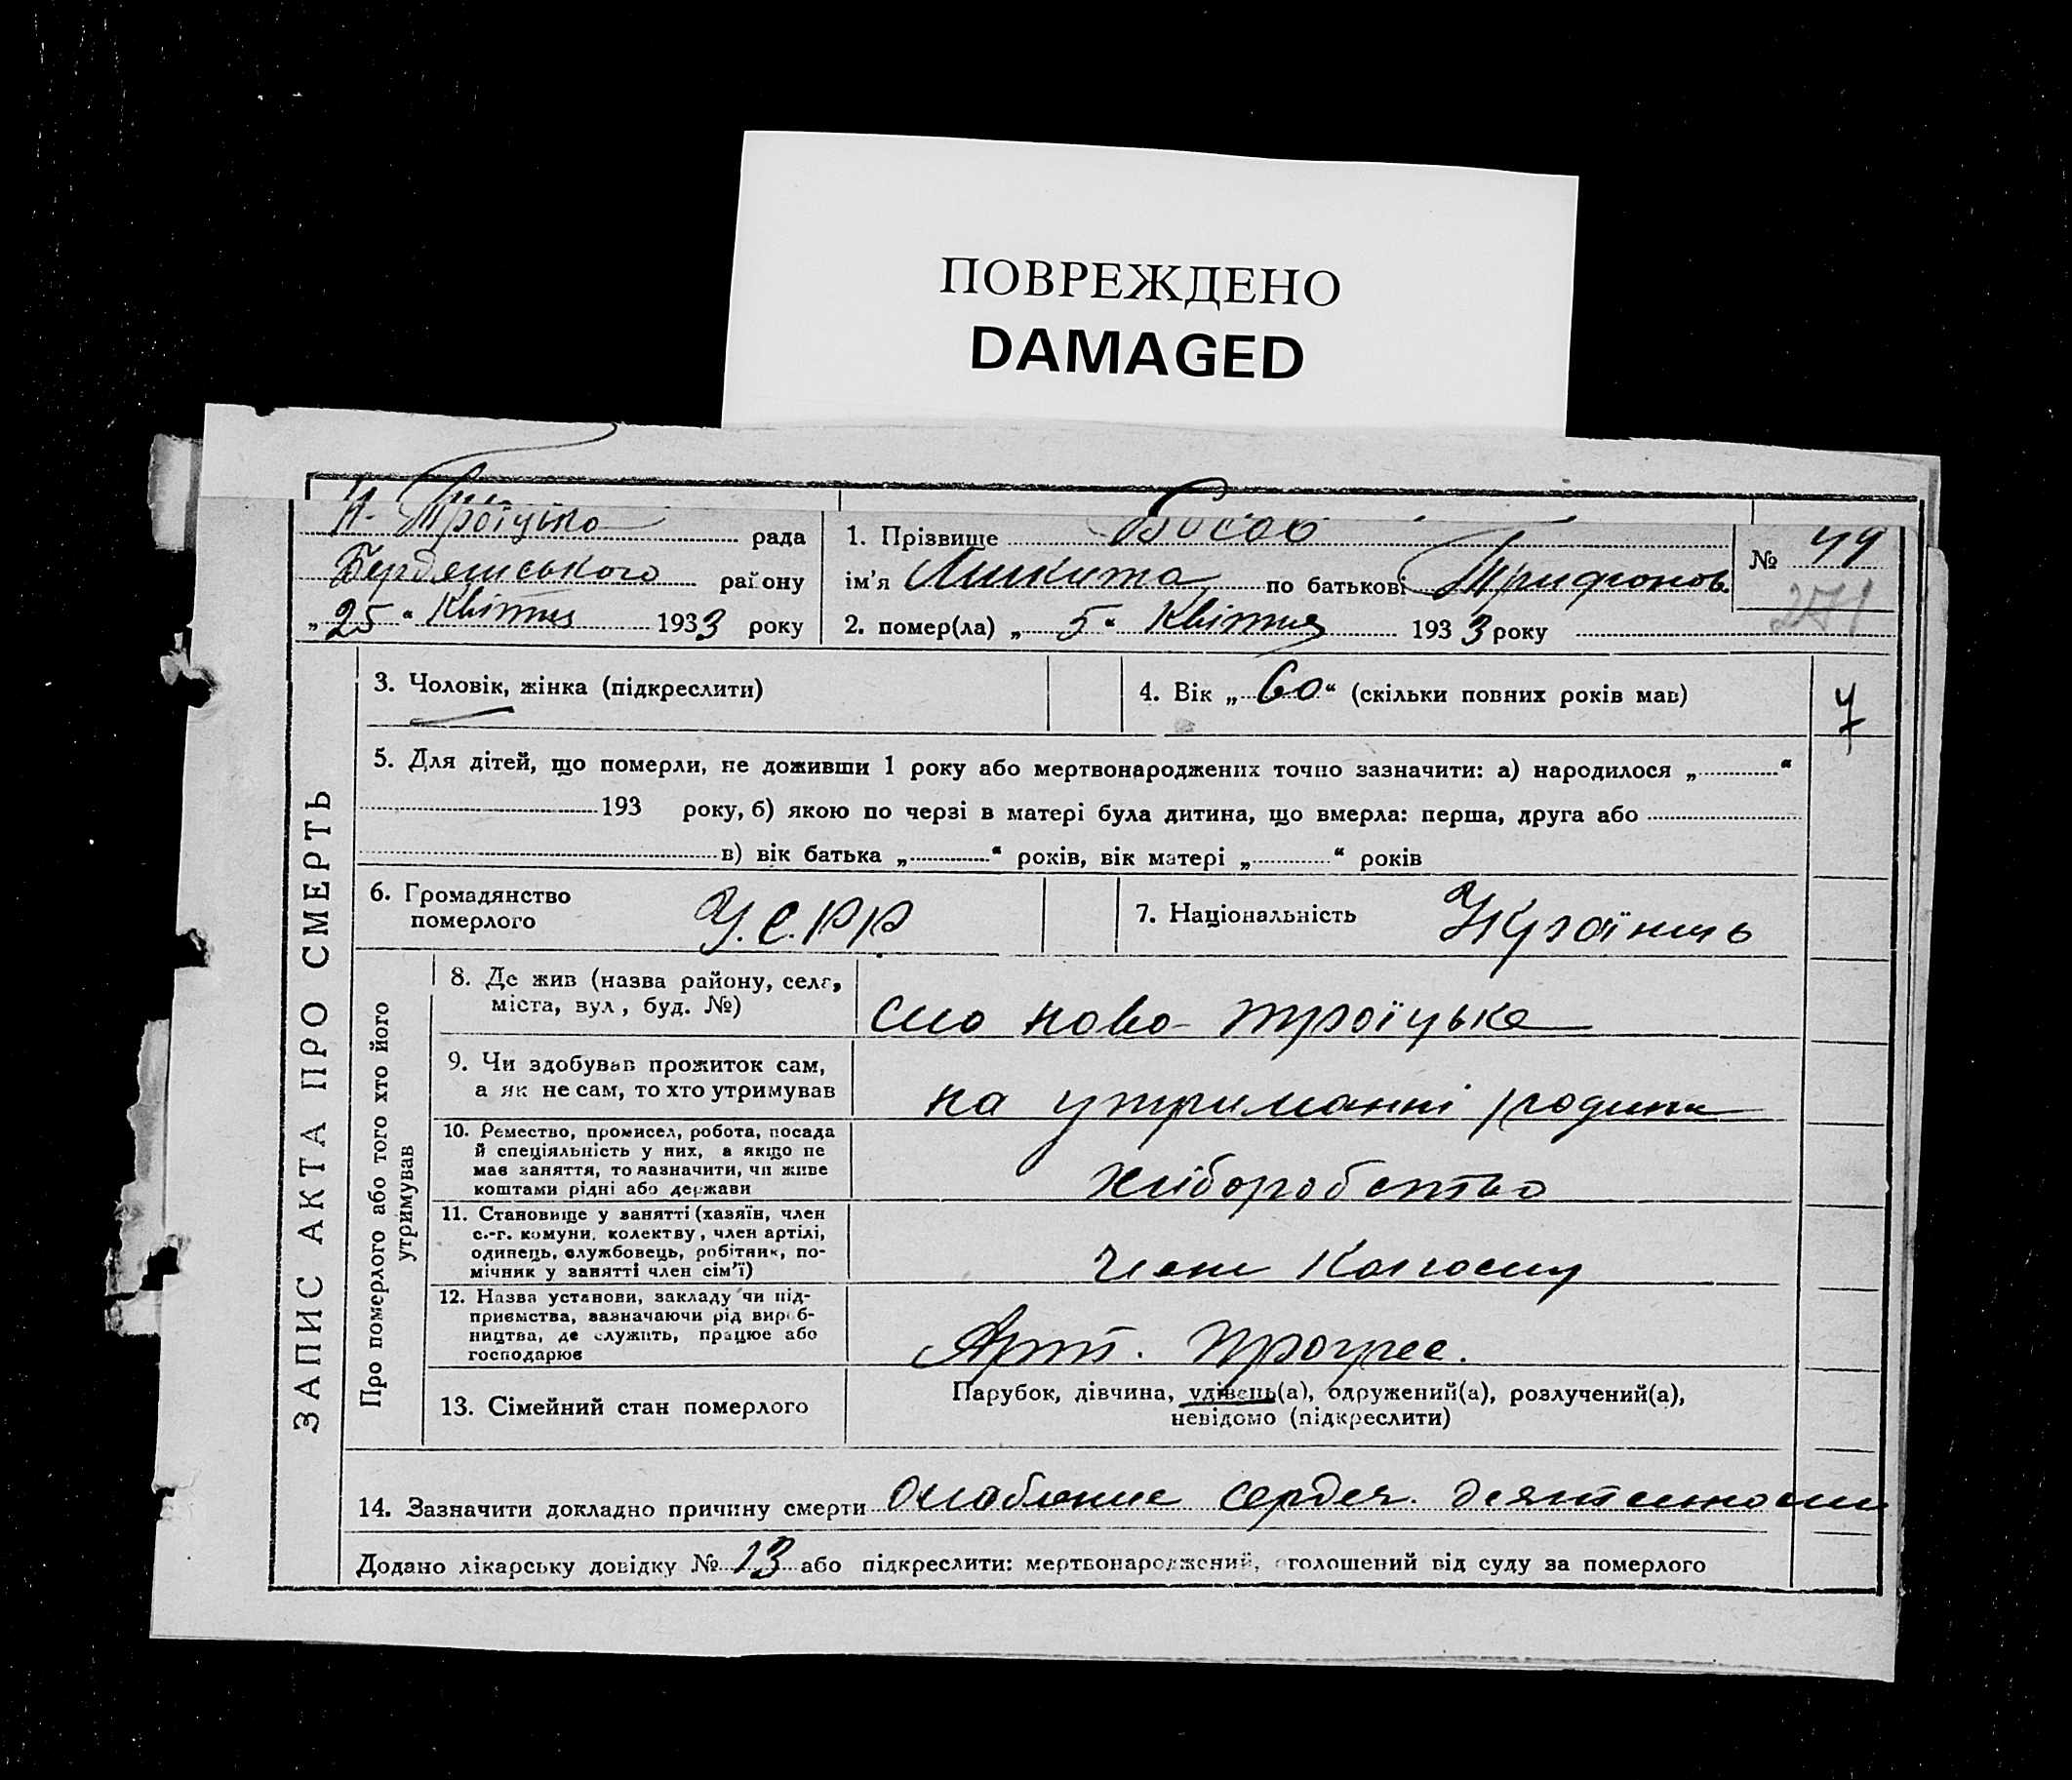 ПОВРЕЖДЕНО
DAMAGED
Н. Троїцько рада
Бердянського району
„25“ Квітня 1933 року
1. Прізвище
ім’я Микита по батькові Трифонов.
2. помер(ла) „5“ Квітня 1933 року
№ 49
271
ЗАПИС АКТА ПРО СМЕРТЬ
3. Чоловік, жінка (підкреслити)
4. Вік „60“ (скільки повних років мав)
5. Для дітей, що померли, не доживши 1 року або мертвонароджених точно зазначити: а) народилося „ “
193 року, б) якою по черзі в матері була дитина, що вмерла: перша, друга або
в) вік батька „ “ років, вік матері „ “ років
6. Громадянство
померлого
У.С.Р.Р
7. Національність Українць
Про померлого або того хто його
утримував
8. Де жив (назва району, села,
міста, вул, буд. №)
село ново-троїцьке
9. Чи здобував прожиток сам,
а як не сам, то хто утримував
на утриманні родини
10. Ремество, промисел, робота, посада
й спеціяльність у них, а якщо не
мав заняття, то зазначити, чи живе
коштами рідні або держави
хліборобство
11. Становище у занятті (хазяїн, член
с.-г. комуни, колектву, член артілі,
одинець, службовець, робітник, по-
мічник у занятті член сім’ї)
член Колгоспу
12. Назва установи, закладу чи під-
приємства, зазначаючи рід вироб-
ництва, де служить, працює або
господарює
Арт. Прогрес.
13. Сімейний стан померлого
Парубок, дівчина, удівець(а), одружений(а), розлучений(а),
невідомо (підкреслити)
14. Зазначити докладно причину смерти Ослабление сердеч. деятельности
Додано лікарську довідку № 13 або підкреслити: мертвонароджений, оголошений від суду за померлого